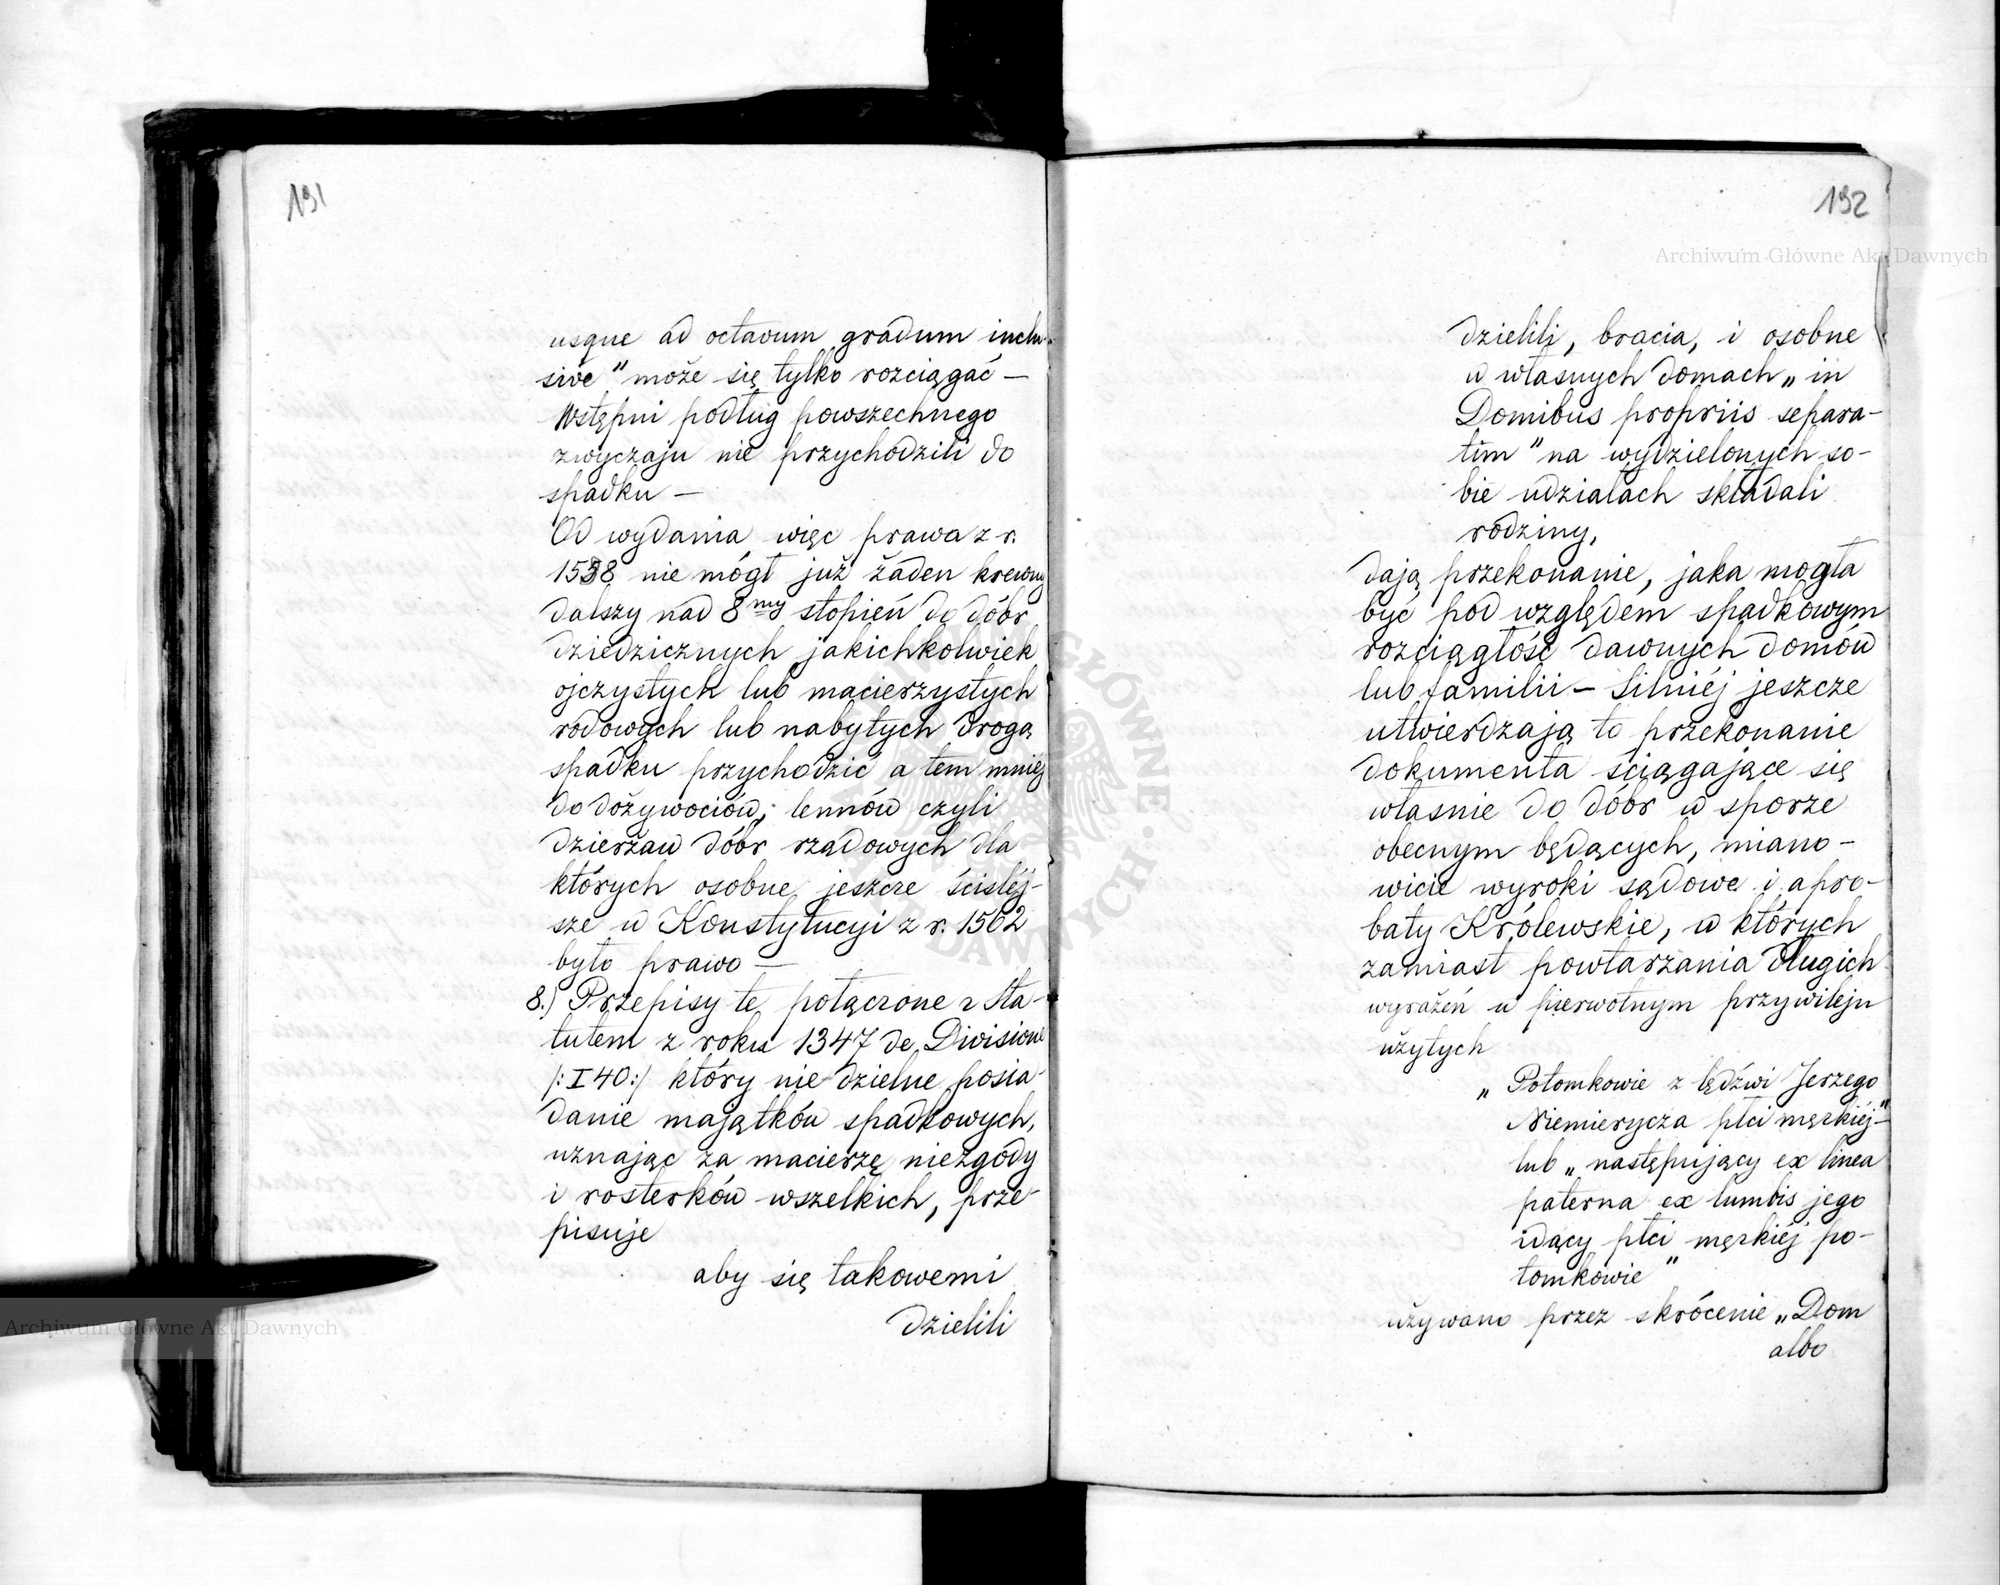 191
usque ad octavum gradum inclu-
sive" może się tylko rozciągać —
Wstępni podług powszechnego
zwyczaju nie przychodzili do
spadku —
Od wydania więc prawa z r.
1538 nie mógł już żaden krewny
dalszy nad 8my stopień do dóbr
dziedzicznych jakichkolwiek
ojczystych lub macierzystych
rodowych lub nabytych drogą
spadku przychodzić a tem mniej
do dożywociów, lennów czyli
dzierżaw dóbr rządowych dla
których osobne jeszcze ściślej-
sze w Konstytucyi z r. 1562
było prawo —
8.) Przepisy te połączone z Sta-
tutem z roku 1347 de Divisione
/: I 40 :/ który nie dzielne posia-
danie majątków spadkowych,
uznając za macierzę niezgody
i rosterków wszelkich, prze-
pisuje
aby się takowemi
dzielili
192
dzielili, bracia, i osobne
w własnych domach „in
Domibus propriis separa-
tim" na wydzielonych so-
bie udziałach składali
rodziny,
dają przekonanie, jaka mogła
być pod względem spadkowym
rozciągłość dawnych domów
lub familii — Silniéj jeszcze
utwierdzają to przekonanie
dokumenta ściągające się
własnie do dóbr w sporze
obecnym będących, miano-
wicie wyroki sądowe i apro-
baty Królewskie, w których
zamiast powtarzania długich
wyrażeń w pierwotnym przywileju
użytych
„Potomkowie z lędźwi Jerzego
Niemierycza płci męzkiéj"
lub „następujący ex linea
paterna ex lumbis jego
idący płci męzkiéj po-
tomkowie"
używano przez skrócenie „Dom
albo
Archiwum Główne Akt Dawnych
Archiwum Główne Akt Dawnych
GŁÓWNE
DAWNYCH